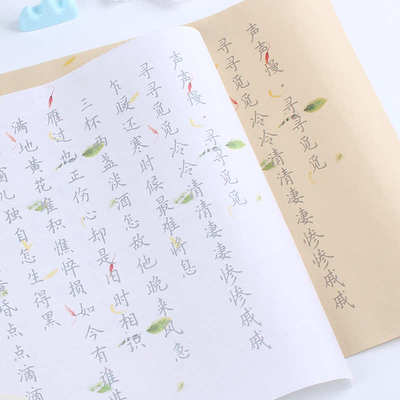 声声慢·寻寻觅觅
寻寻觅觅冷冷清清凄凄惨惨戚戚
声声慢·寻寻觅觅
寻寻觅觅冷冷清清凄凄惨惨戚戚
乍暖还寒时候最难将息
三杯两盏淡酒怎敌他晚来风急
雁过也正伤心却是旧时相识
满地黄花堆积憔悴损如今有谁堪
儿独自怎生得黑
昏点点滴滴